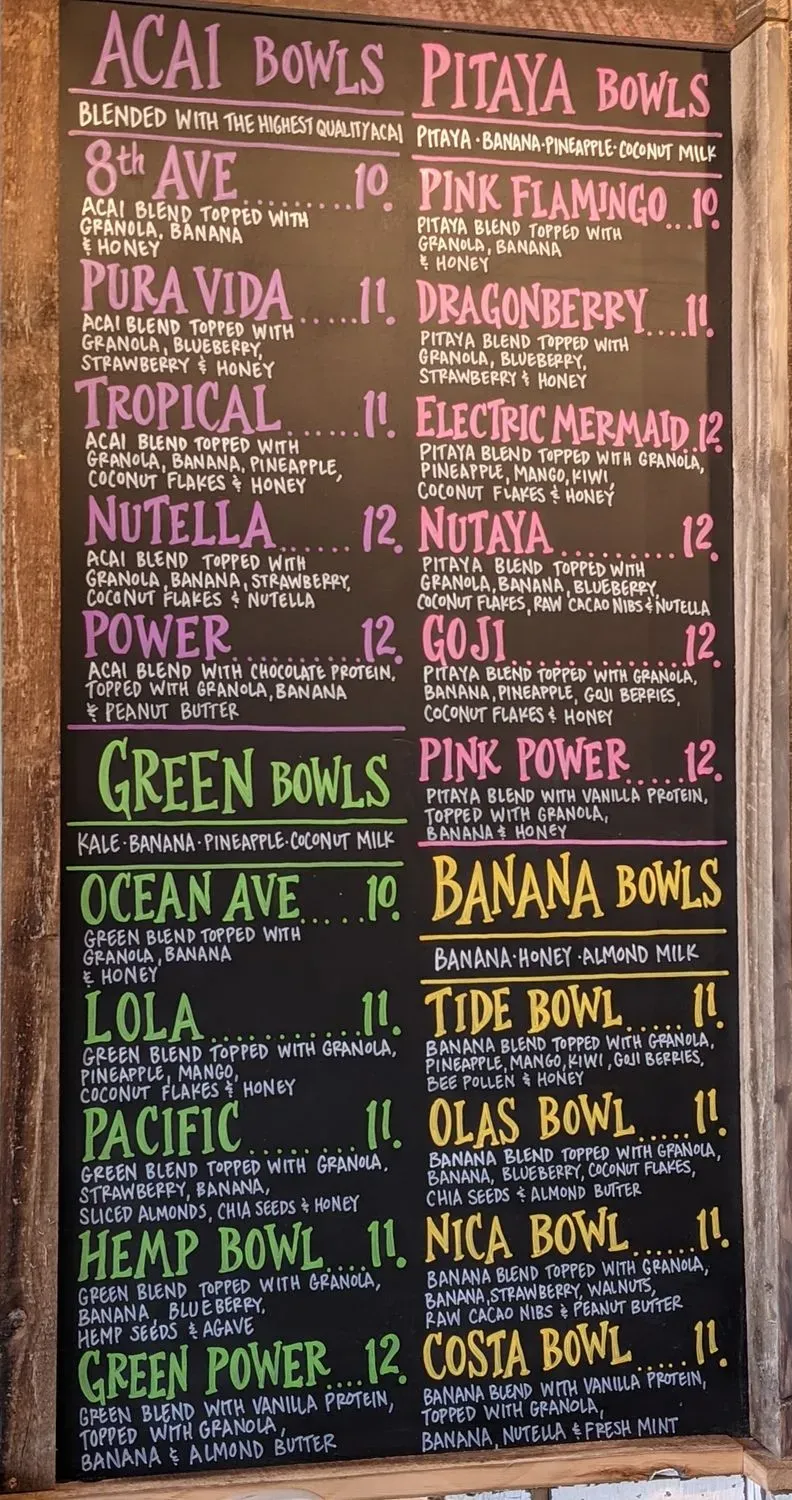 ACAI BOWLS
BLENDED WITH THE HIGHEST QUALITY ACAI
8th AVE.........10.
ACAI BLEND TOPPED WITH
GRANOLA, BANANA
& HONEY
PURA VIDA.....11.
ACAI BLEND TOPPED WITH
GRANOLA, BLUEBERRY,
STRAWBERRY & HONEY
TROPICAL......11.
ACAI BLEND TOPPED WITH
GRANOLA, BANANA, PINEAPPLE,
COCONUT FLAKES & HONEY
NUTELLA......12.
ACAI BLEND TOPPED WITH
GRANOLA, BANANA, STRAWBERRY,
COCONUT FLAKES & NUTELLA
POWER..........12.
ACAI BLEND WITH CHOCOLATE PROTEIN,
TOPPED WITH GRANOLA, BANANA
& PEANUT BUTTER
GREEN BOWLS
KALE·BANANA·PINEAPPLE·COCONUT MILK
OCEAN AVE.....10.
GREEN BLEND TOPPED WITH
GRANOLA, BANANA
& HONEY
LOLA...........11.
GREEN BLEND TOPPED WITH GRANOLA,
PINEAPPLE, MANGO,
COCONUT FLAKES & HONEY
PACIFIC........11.
GREEN BLEND TOPPED WITH GRANOLA,
STRAWBERRY, BANANA,
SLICED ALMONDS, CHIA SEEDS & HONEY
HEMP BOWL....11.
GREEN BLEND TOPPED WITH GRANOLA,
BANANA, BLUEBERRY,
HEMP SEEDS & AGAVE
GREEN POWER...12.
GREEN BLEND WITH VANILLA PROTEIN,
TOPPED WITH GRANOLA,
BANANA & ALMOND BUTTER
PITAYA BOWLS
PITAYA·BANANA·PINEAPPLE·COCONUT MILK
PINK FLAMINGO...10.
PITAYA BLEND TOPPED WITH
GRANOLA, BANANA
& HONEY
DRAGONBERRY....11.
PITAYA BLEND TOPPED WITH
GRANOLA, BLUEBERRY,
STRAWBERRY & HONEY
ELECTRIC MERMAID.12.
PITAYA BLEND TOPPED WITH GRANOLA,
PINEAPPLE, MANGO, KIWI,
COCONUT FLAKES & HONEY
NUTAYA..........12.
PITAYA BLEND TOPPED WITH
GRANOLA, BANANA, BLUEBERRY,
COCONUT FLAKES, RAW CACAO NIBS & NUTELLA
GOJI..............12.
PITAYA BLEND TOPPED WITH GRANOLA,
BANANA, PINEAPPLE, GOJI BERRIES,
COCONUT FLAKES & HONEY
PINK POWER.....12.
PITAYA BLEND WITH VANILLA PROTEIN,
TOPPED WITH GRANOLA,
BANANA & HONEY
BANANA BOWLS
BANANA·HONEY·ALMOND MILK
TIDE BOWL......11.
BANANA BLEND TOPPED WITH GRANOLA,
PINEAPPLE, MANGO, KIWI, GOJI BERRIES,
BEE POLLEN & HONEY
OLAS BOWL.....11.
BANANA BLEND TOPPED WITH GRANOLA,
BANANA, BLUEBERRY, COCONUT FLAKES,
CHIA SEEDS & ALMOND BUTTER
NICA BOWL......11.
BANANA BLEND TOPPED WITH GRANOLA,
BANANA, STRAWBERRY, WALNUTS,
RAW CACAO NIBS & PEANUT BUTTER
COSTA BOWL.....11.
BANANA BLEND WITH VANILLA PROTEIN,
TOPPED WITH GRANOLA,
BANANA, NUTELLA & FRESH MINT